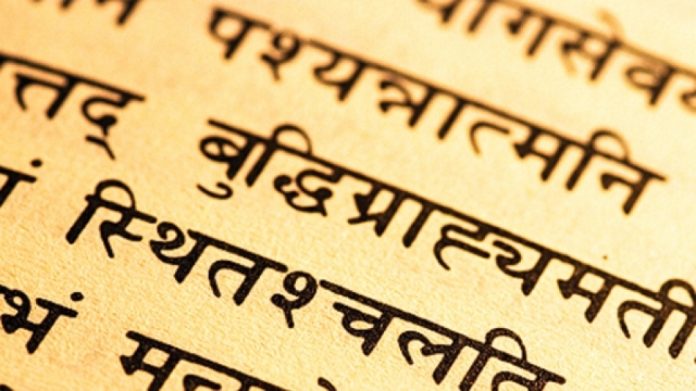 योगसेवय
पश्यन्नात्मनि
त्तद् बुद्धिग्राह्यमती
स्थितश्चलति
भं मन्य